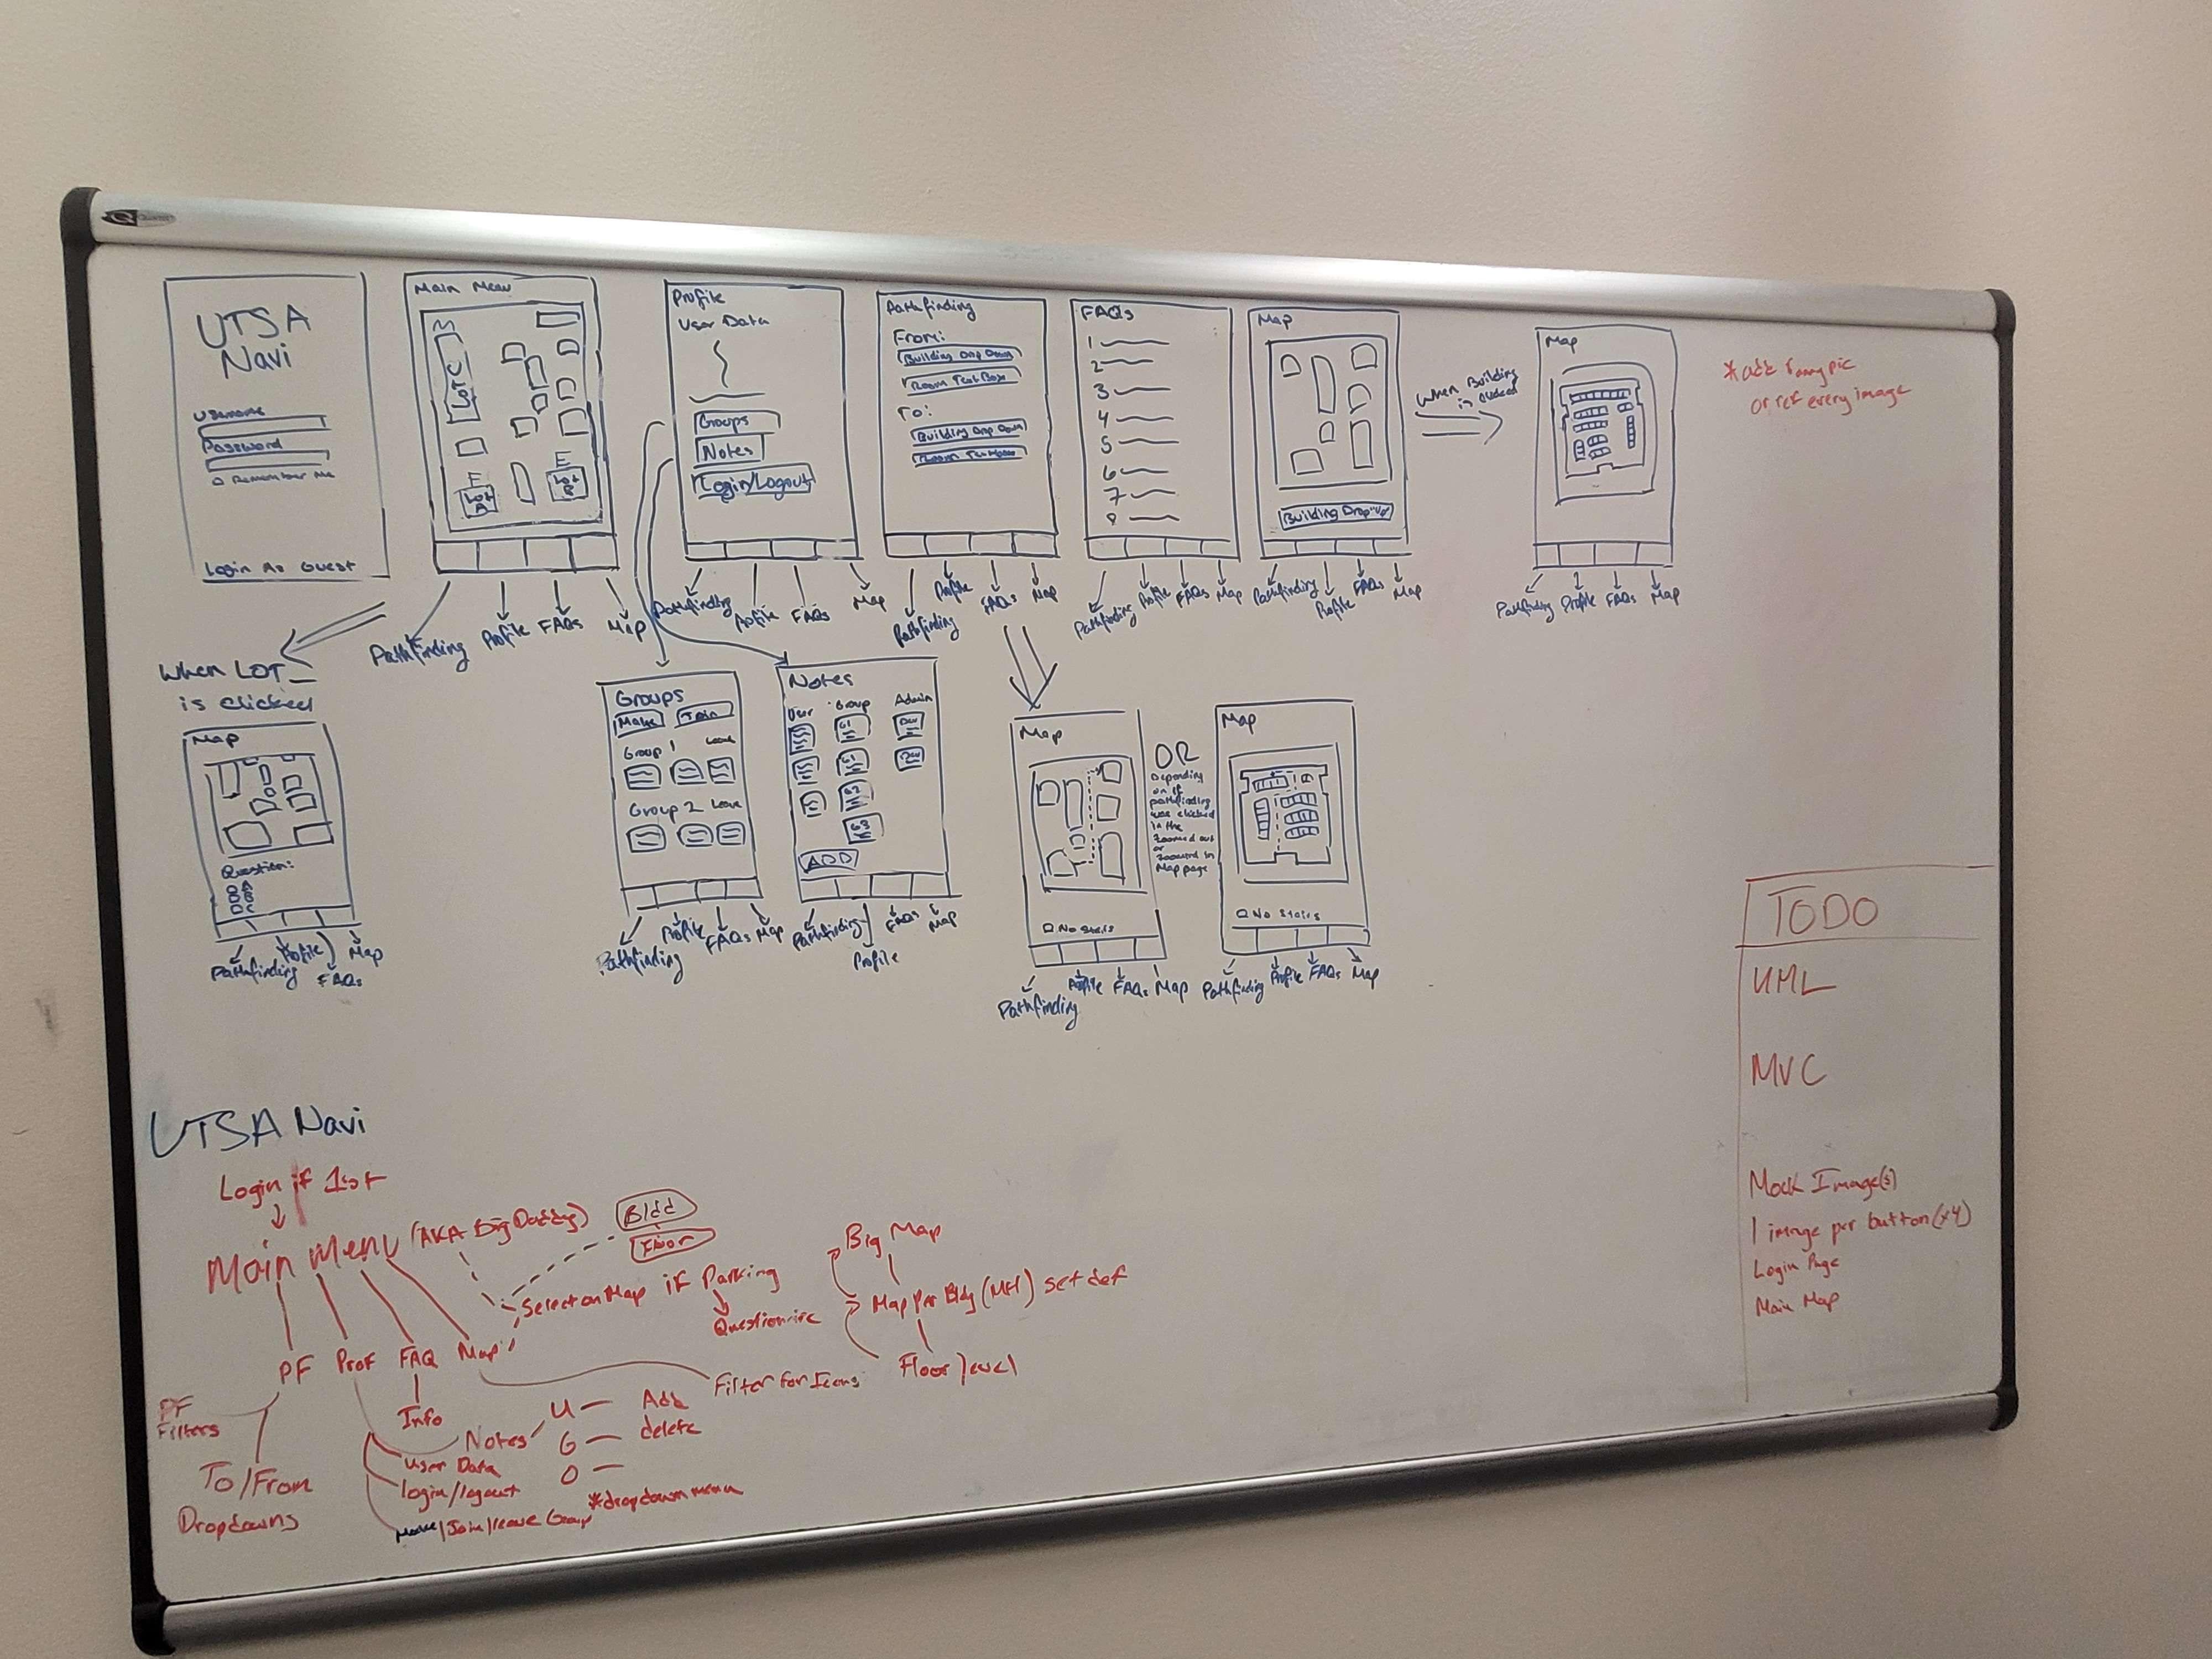 UTSA
Navi
Username
Password
Remember Me
Login As Guest
Main Menu
M
LOT C
E
LOT
A
E
LOT
B
Pathfinding
Profile
FAQs
Map
Profile
User Data
Groups
Notes
Login/Logout
Pathfinding
Profile
FAQs
Map
Pathfinding
From:
Building Drop Down
Room Text Box
To:
Building Drop Down
Room Text Box
Pathfinding
Profile
FAQs
Map
FAQs
1
2
3
4
5
6
7
8
Pathfinding
Profile
FAQs
Map
Map
Building Drop-Up
Pathfinding
Profile
FAQs
Map
When Building
is clicked
Map
Pathfinding
Profile
FAQs
Map
*add
pic
or ref every image
When LOT _
is clicked
Map
Question:
A
B
C
Pathfinding
Profile
FAQs
Map
Groups
Make
Join
Group 1
Leave
Group 2
Leave
Pathfinding
Profile
FAQs
Map
Notes
User
Group
Admin
G1
G1
G2
G3
ADD
Pathfinding
Profile
FAQs
Map
Map
No Stairs
Pathfinding
Profile
FAQs
Map
OR
Depending
on if
pathfinding
was clicked
in the
zoomed out
or
zoomed in
Map page
Map
No Stairs
Pathfinding
Profile
FAQs
Map
TODO
UML
MVC
Mock Image(s)
1 image per button (x4)
Login Page
Main Map
UTSA Navi
Login if 1st
Main Menu (AKA Big Daddy)
Bldd
Floor
Selection Map if Parking
Big Map
Map per Bldg (MH) set def
Floor level
PF
Prof
FAQ
Map
Filter for Icons
PF
Filters
To/From
Dropdowns
Info
Notes
U — Add
G — delete
O —
User Data
login/logout
Make/Join/leave Group
*dropdown menu